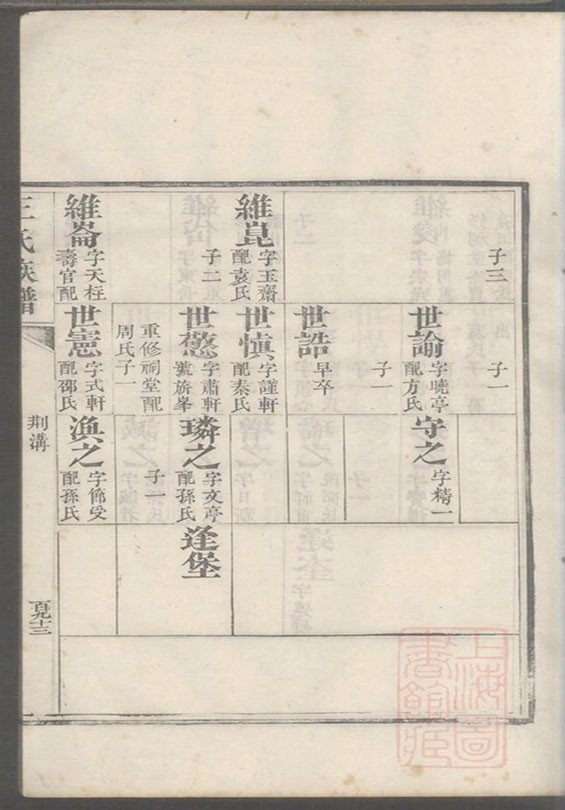 子三
維崑
字玉齋
配袁氏
子二
維崙
字天柱
壽官配
子一
世諭
字曉亭
配方氏
子一
世誥
早卒
世愼
字謹軒
配秦氏
世慤
字肅軒
號旂峯
重修祠堂配
周氏子一
世憲
字式軒
配邵氏
守之
字精一
璘之
字文亭
配孫氏
子一
渙之
字節受
配孫氏
逢堡
王氏族譜
荆溝
上海圖
書館藏